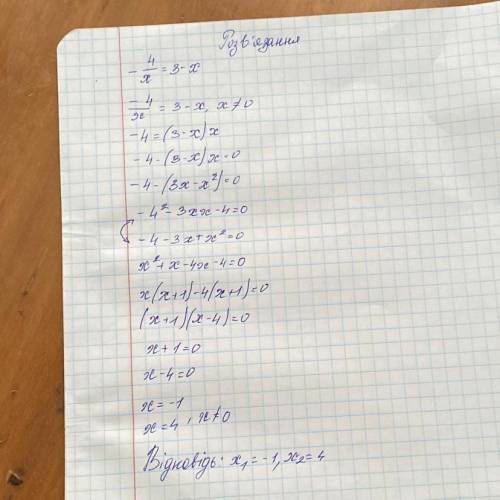 Розв'язання
- 4/x = 3 - x
-4/x = 3 - x, x ≠ 0
-4 = (3 - x)x
-4 - (3 - x)x = 0
-4 - (3x - x²) = 0
-4² - 3xx - 4 = 0
-4 - 3x + x² = 0
x² + x - 4x - 4 = 0
x(x+1) - 4(x+1) = 0
(x+1)(x-4) = 0
x + 1 = 0
x - 4 = 0
x = -1
x = 4, x ≠ 0
Відповідь: x₁ = -1, x₂ = 4